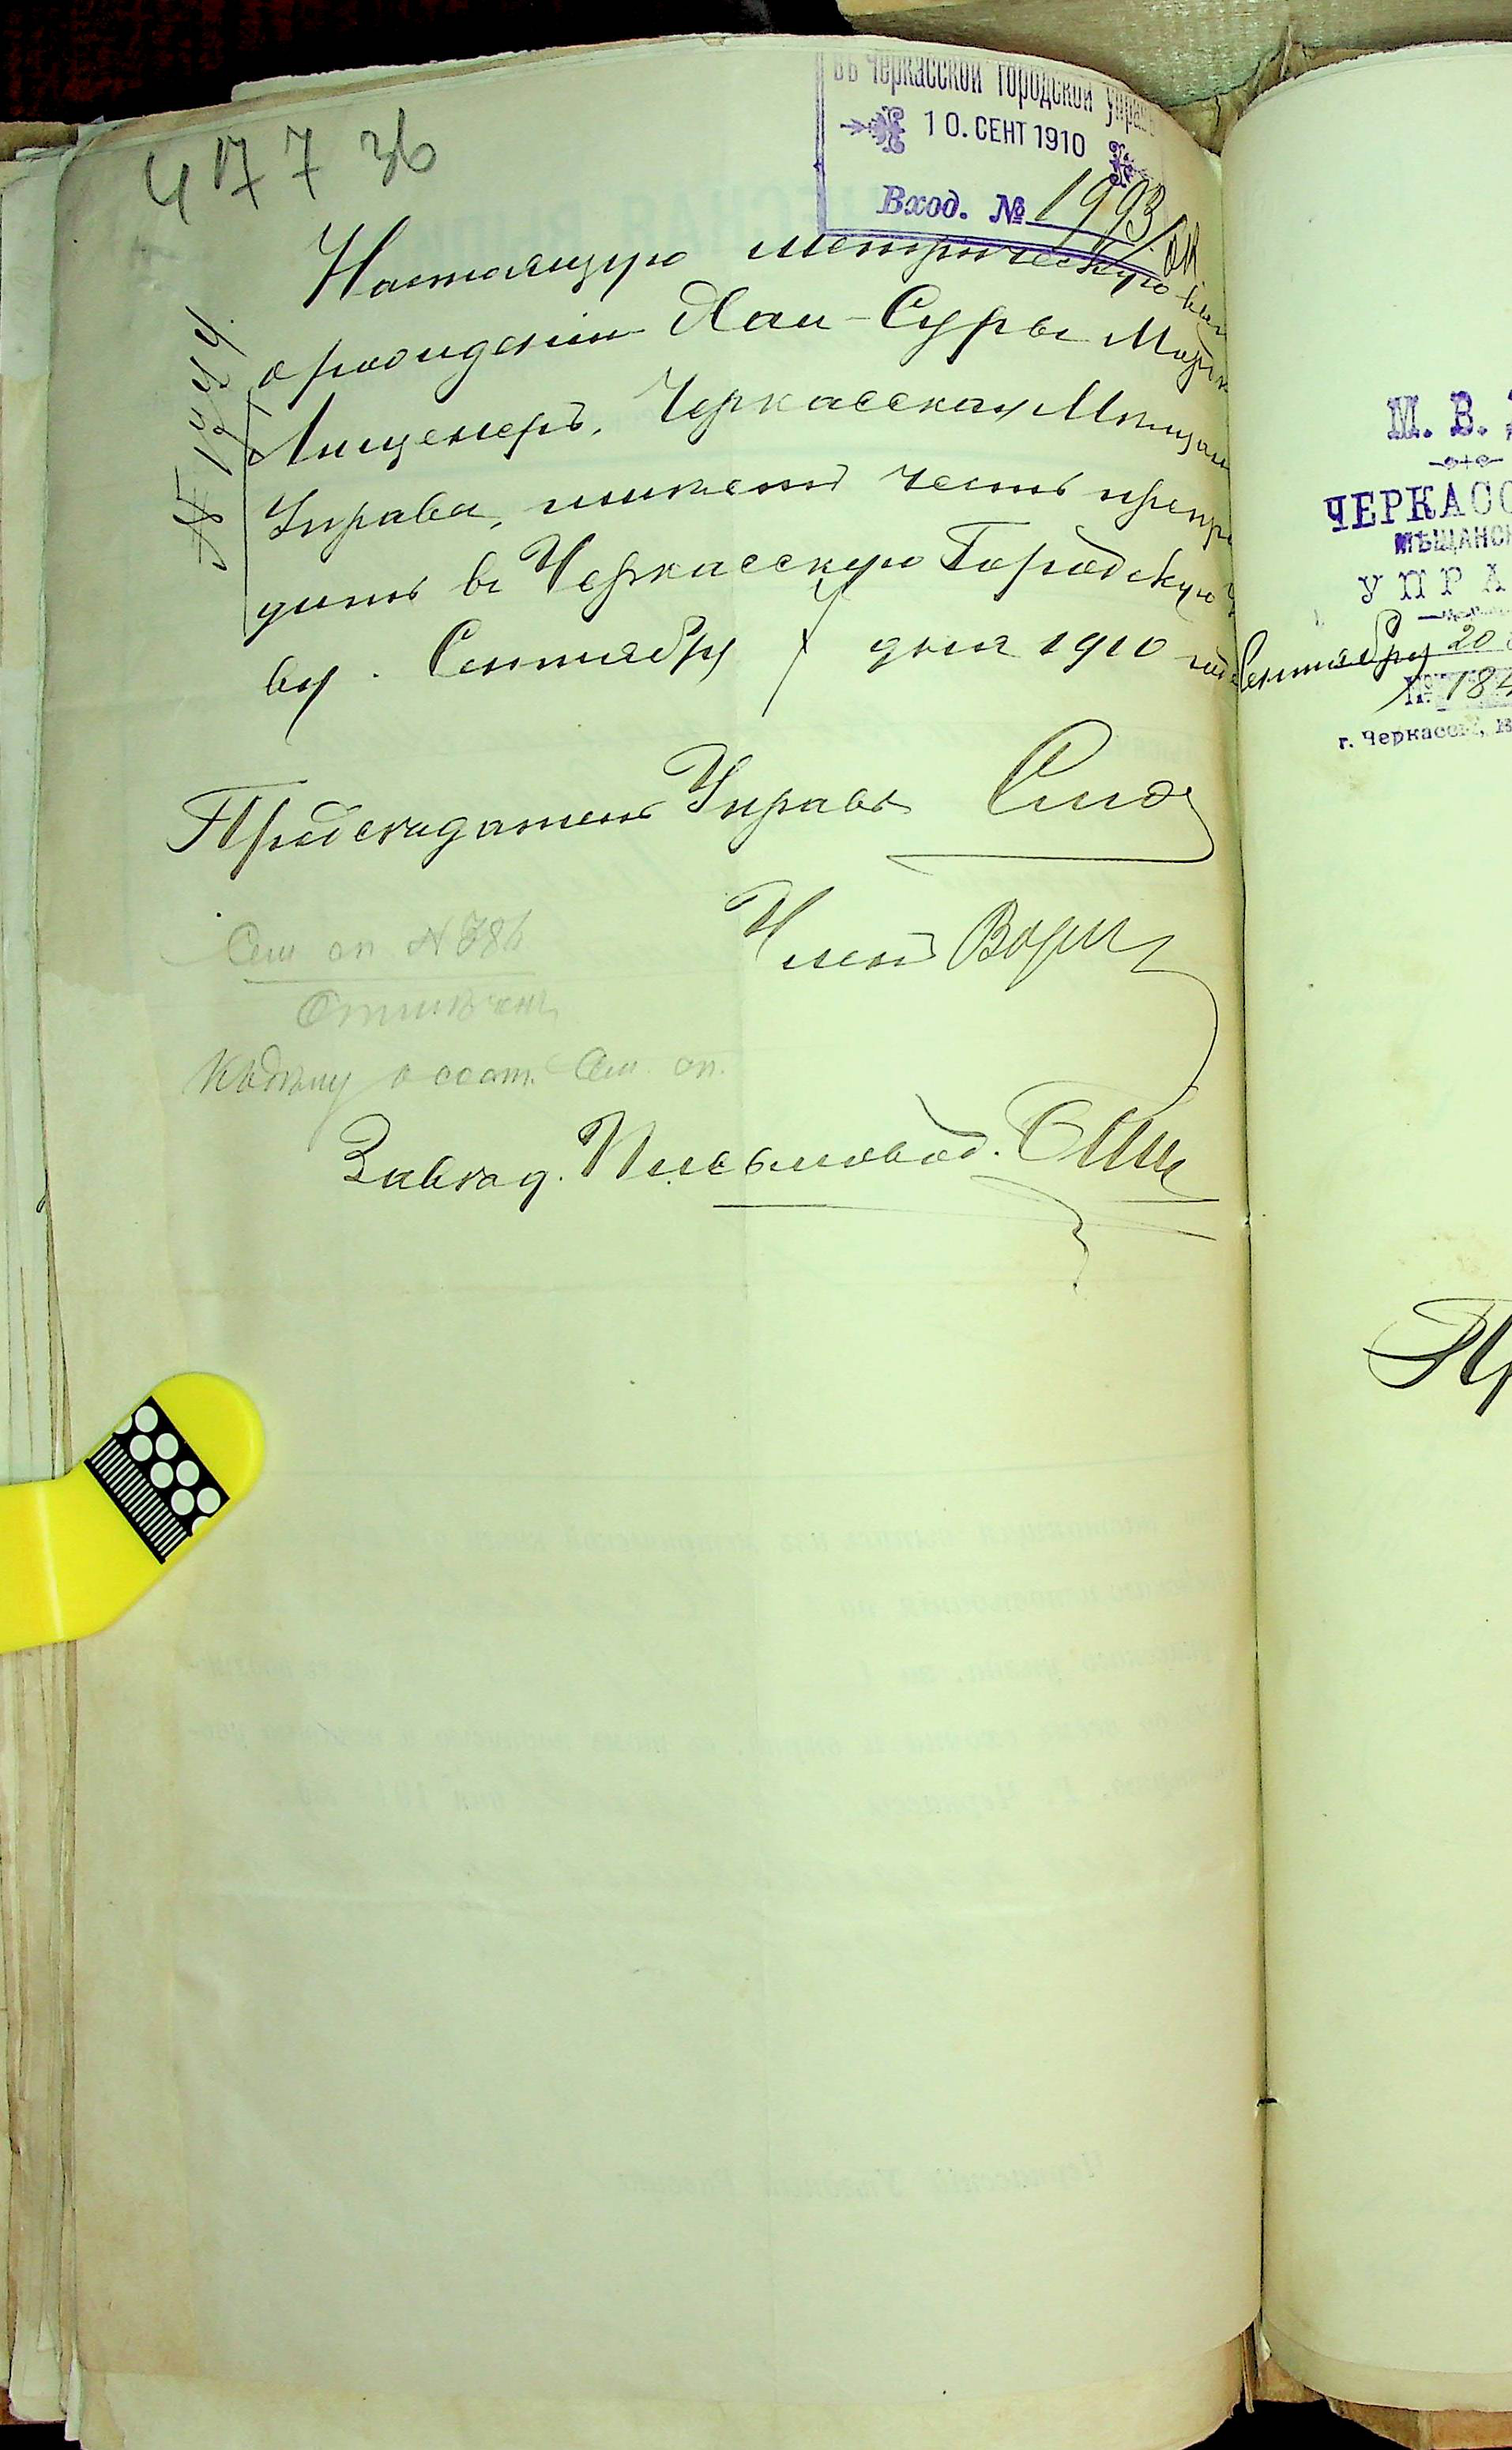 въ Черкасской городской управѣ
10. СЕНТ 1910
Вход. № 1993
477 зв
Настоящую метрическую
о рождении Хаи-Суры
Лищенеръ, Черкасская Мѣщан
Управа, имѣетъ честь препро
дить въ Черкасскую Городскую У
ву. Сентября 7 дня 1910
Предсѣдатель Управы
Членъ
Сем сп. №
Отмѣчен
Къ дѣлу о сост. Сем. сп.
Завѣд. Письмовод.
М. В.
ЧЕРКАСС
МѢЩАНСК
УПРА
Сентября 20
№ 184
г. Черкассы,
Пр